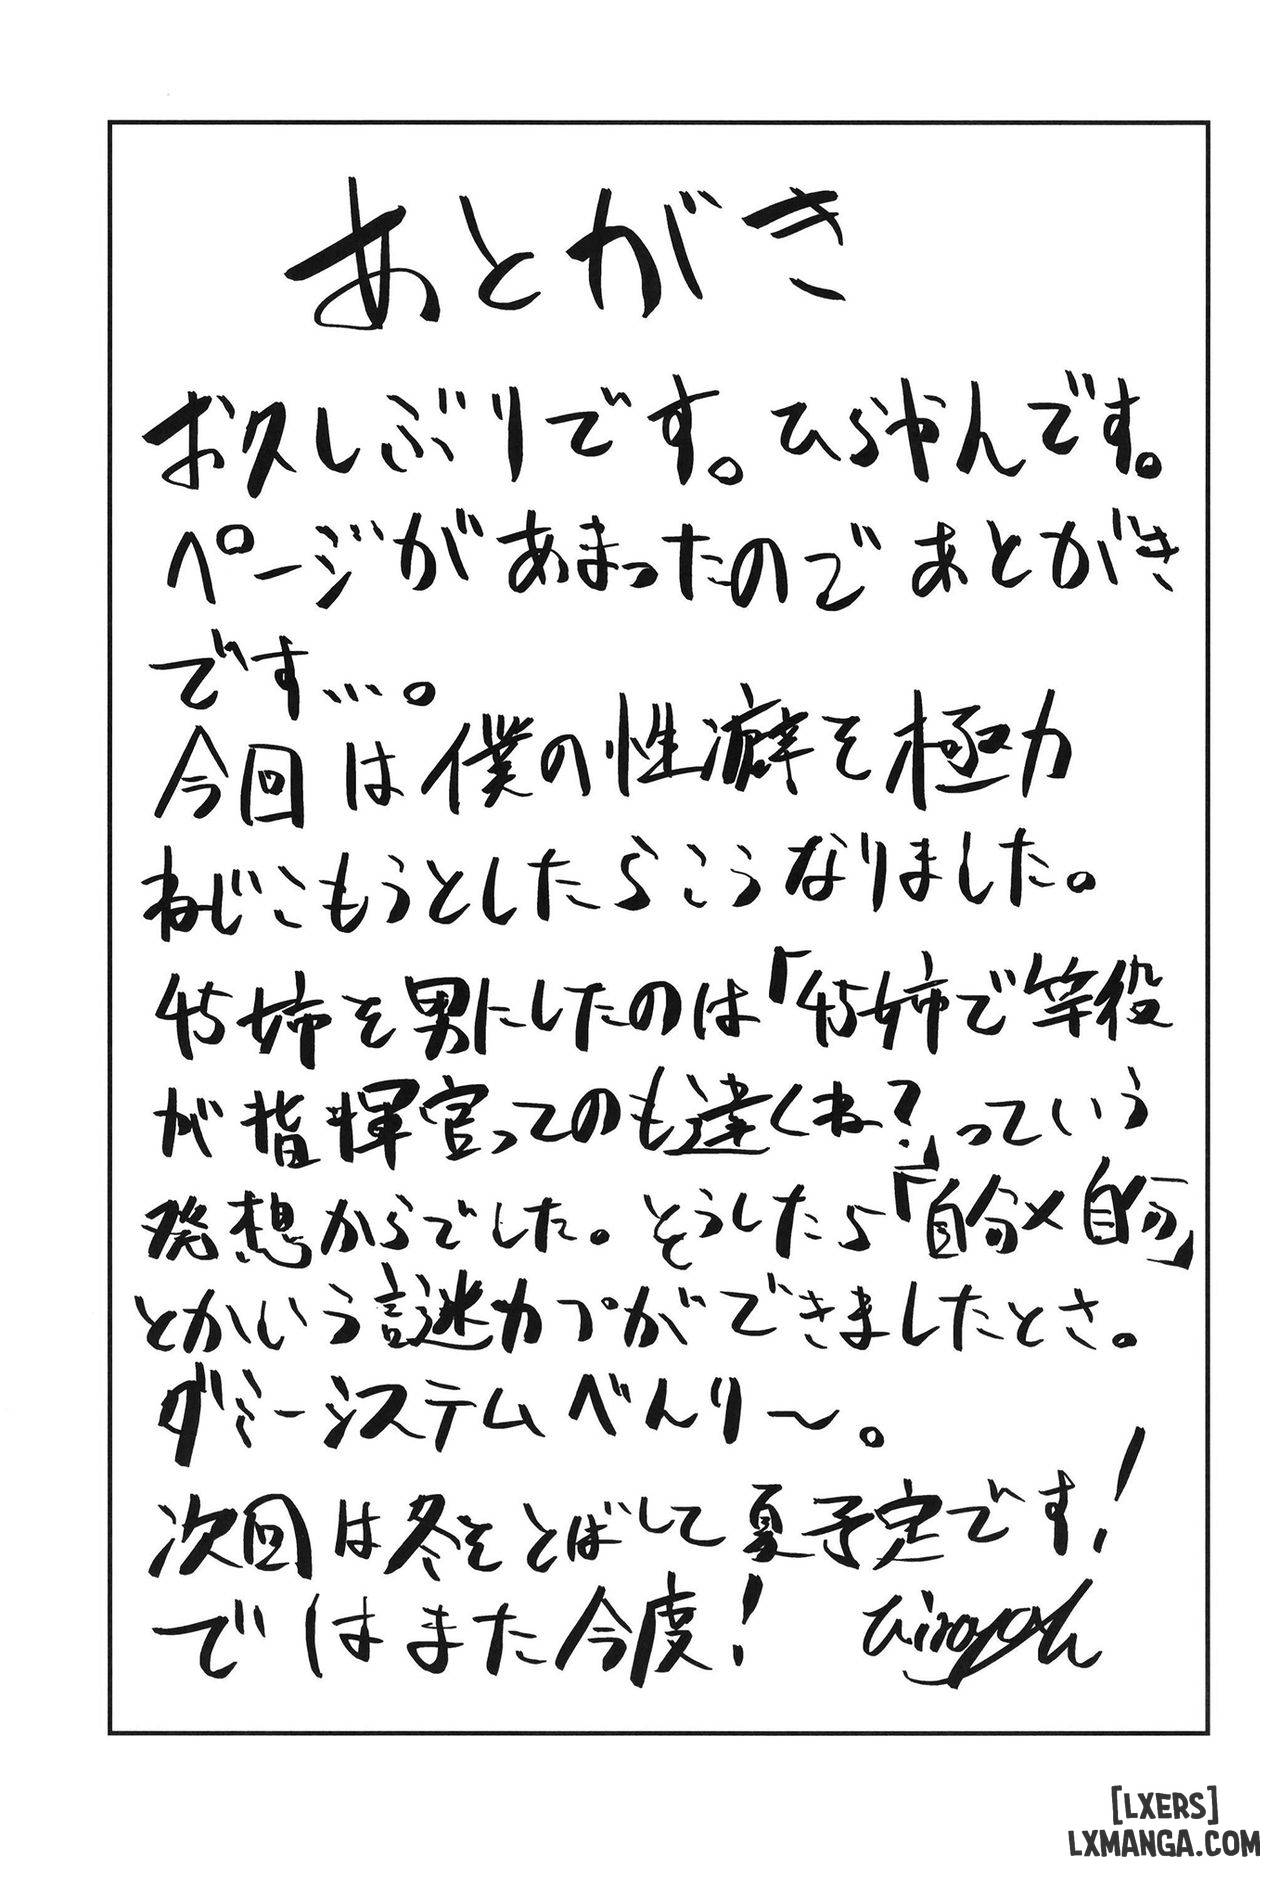 あとがき
お久しぶりです。ひらやんです。
ページがあまったのであとがき
です…。
今回は僕の性癖を極力
ねじこもうとしたらこうなりました。
45姉を男にしたのは「45姉で竿役
が指揮官ってのも違くね？」っていう
発想からでした。そうしたら「自分×自分」
とかいう謎カプができましたとさ。
ダミーシステムべんり〜。
次回は冬をとばして夏予定です！
ではまた今度！
[LXERS]
LXMANGA.COM